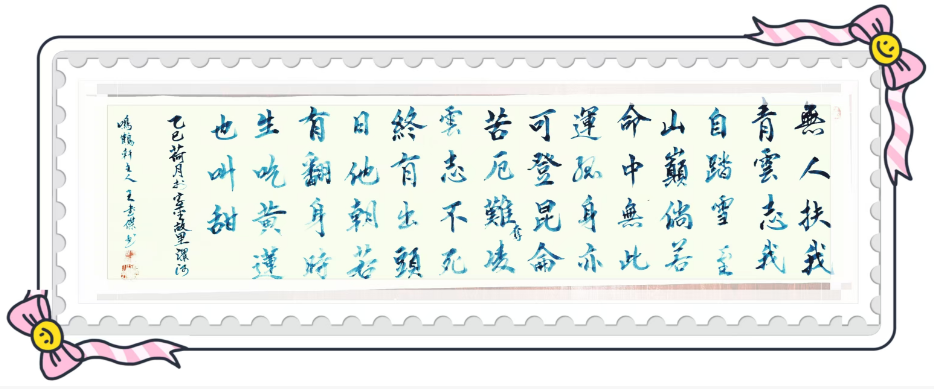 無人扶我
青雲志我
自踏雪至
山巔倘若
命中無此
運孤身亦
可登昆侖
苦厄難凌
雲志不死
終有出頭
日他朝若
有翻身時
生吃黃蓮
也叫甜
乙巳荷月於字聖故里漯河
鳴鶴軒主人王書傑書